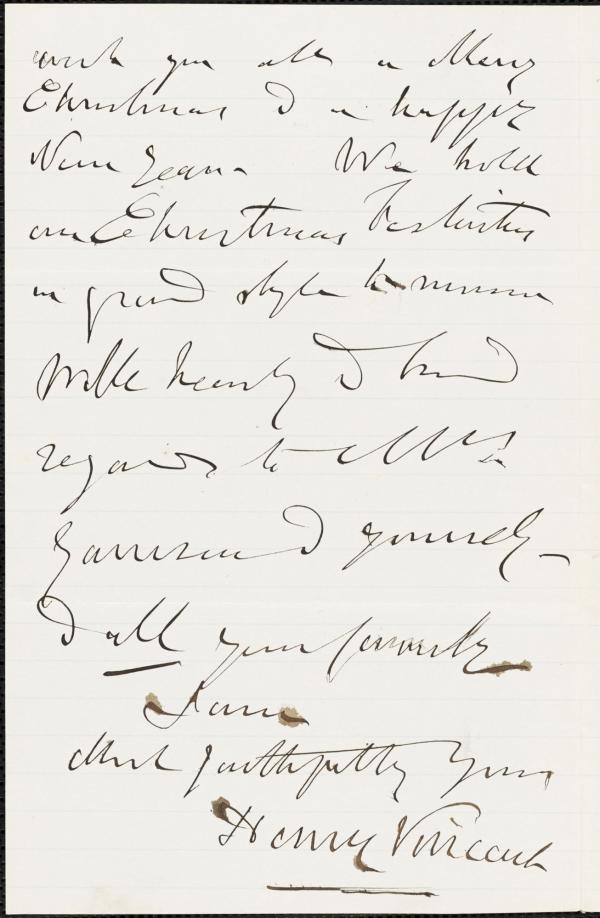 wish you all a Merry
Christmas & a happy
New Year. We hold
our Christmas Festivities
in grand style
With hearty & kind
regards to Mrs
Garrison & yourself—
& all your family
I am
Most faithfully Yours
Henry Vincent